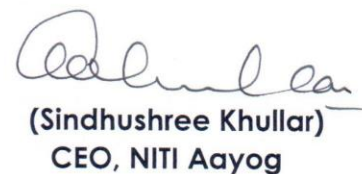 (Sindhushree Khullar)
CEO, NITI Aayog